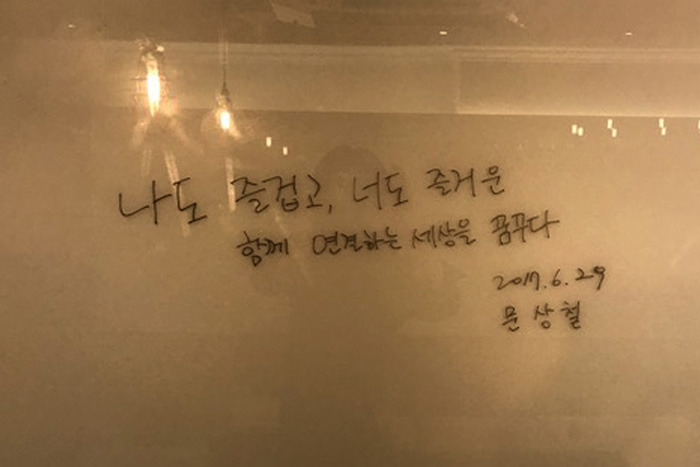 나도 즐겁고, 너도 즐거운
함께 연결하는 세상을 꿈꾸다
2017.6.29
문상철